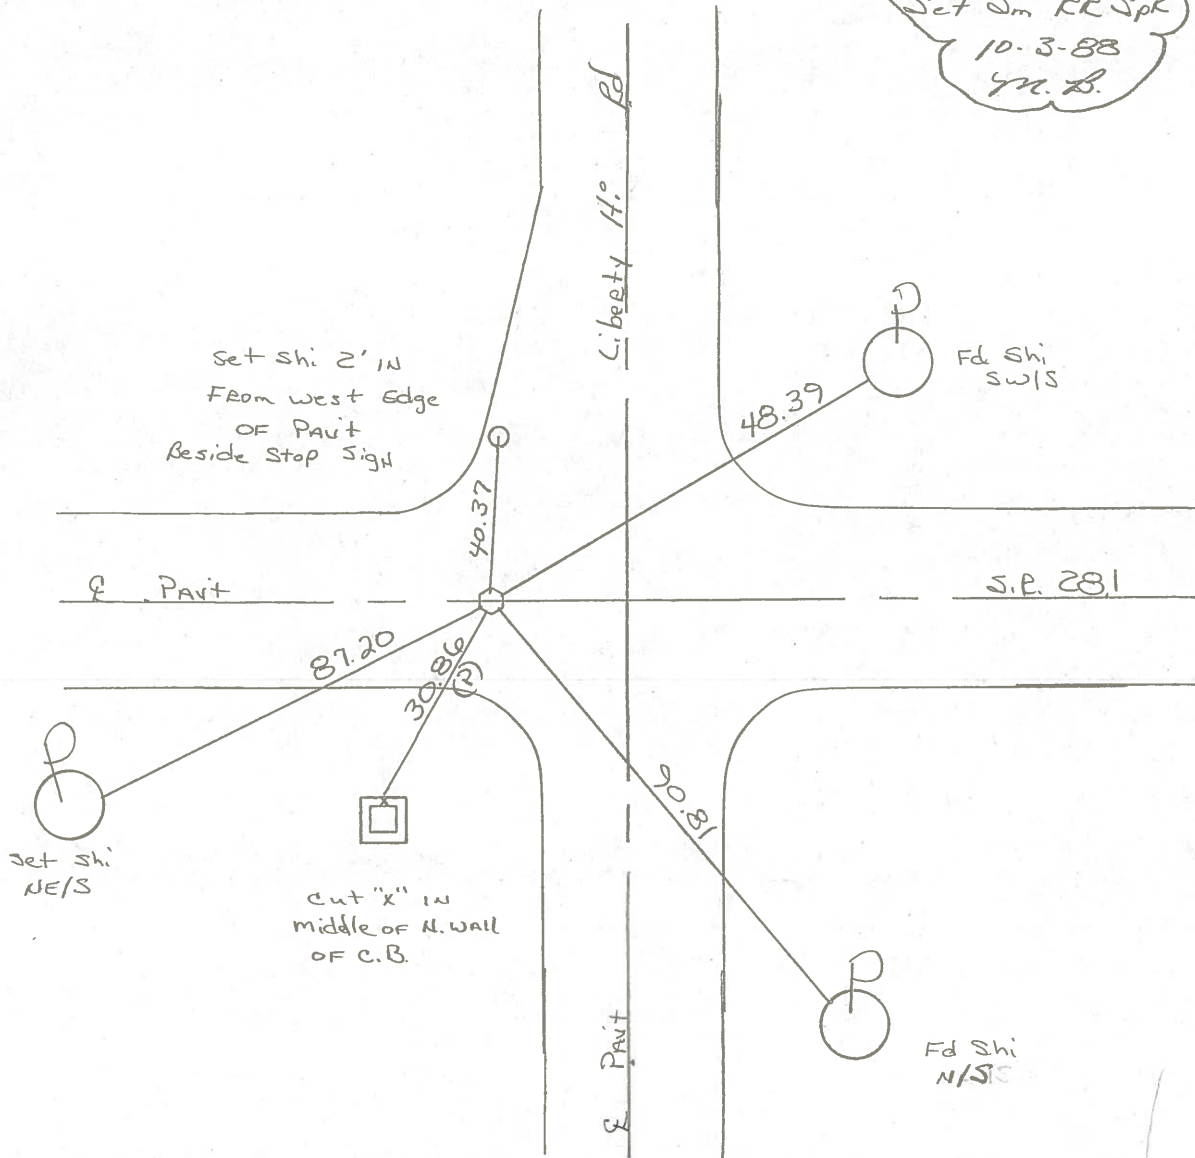 Set Sm RR Spk
10-3-88
M. B.
Liberty Hi Rd
Set Shi 2' in
From West Edge
OF PAv't
Beside Stop Sign
Fd. Shi
SW/S
48.39
40.37
℄ PAv't
S.R. 281
87.20
30.86
(?)
90.81
Set Shi
NE/S
Cut "X" in
middle OF N. WAll
OF C.B.
℄ PAv't
Fd Shi
N/S